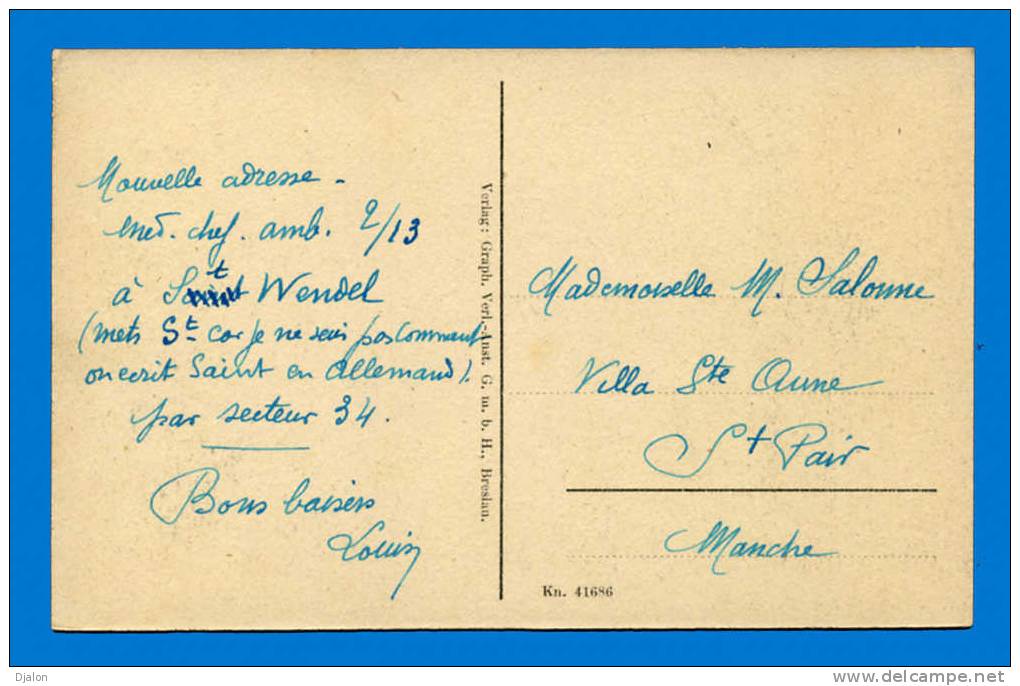 Nouvelle adresse -
Med. chef. amb. 2/13
à St Wendel
(mets St car je ne sais pas comment
on ecrit Saint en Allemand).
par secteur 34.
Bons baisers
Louis
Verlag: Graph. Verl.-Anst. G. m. b. H., Breslau.
Mademoiselle M. Salonne
Villa Ste Anne
St Pair
Manche
Kn. 41686
Djalon
delcampe.net